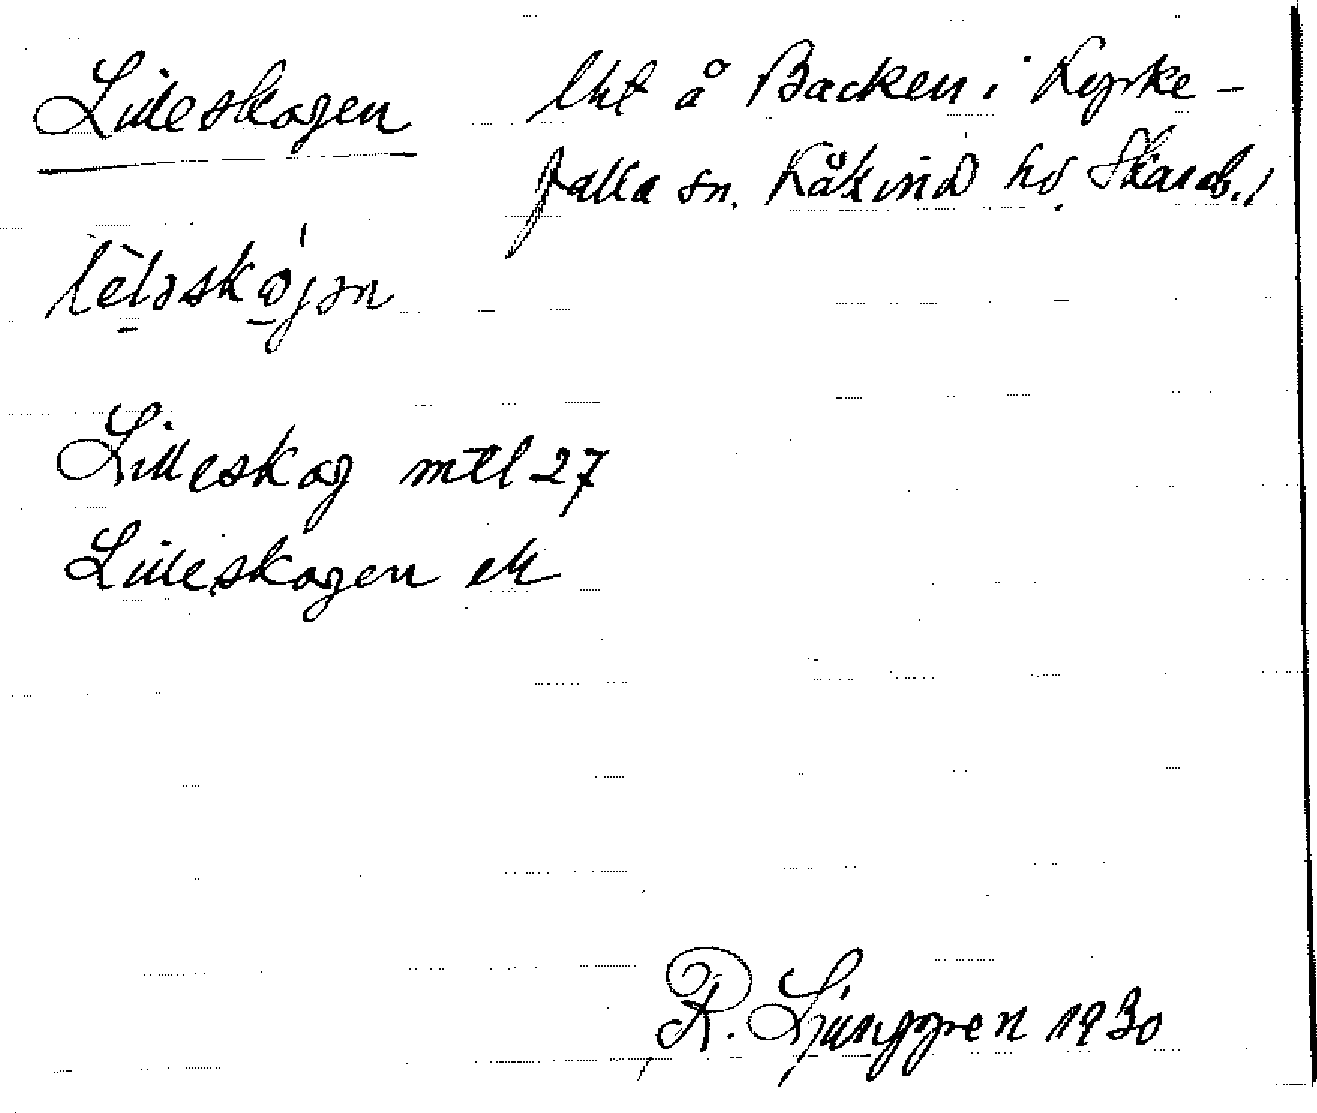 Lilleskogen lht å Backen i Kyrke-
falla sn. Kåkind hd. Skarab. l
lèləskọ̀gən
Lilleskog mtl 27
Lilleskogen ek
R. Ljunggren 1930